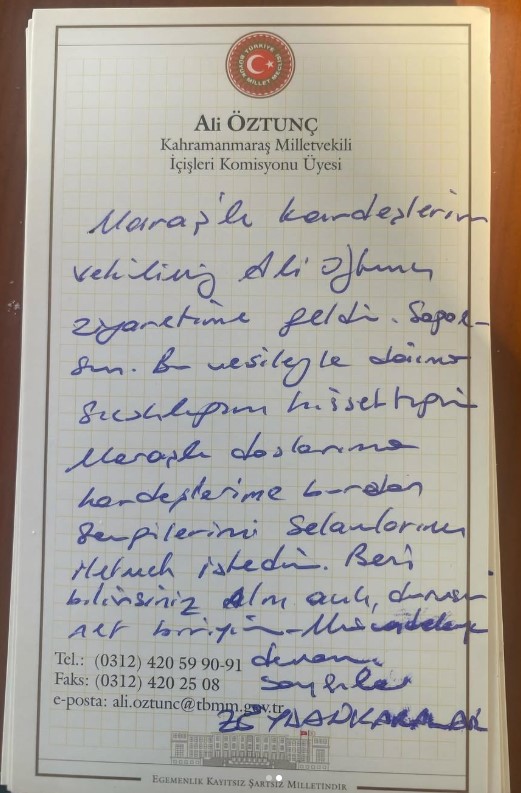 TÜRKİYE BÜYÜK MİLLET MECLİSİ
Ali ÖZTUNÇ
Kahramanmaraş Milletvekili
İçişleri Komisyonu Üyesi
Maraşlı kardeşlerim
vekiliniz Ali Öztunç
ziyaretime geldi. Sagol-
sun. Bu vesileyle daima
Sıcaklıgını hissettigim
Maraşlı dostlarıma
kardeşlerime burdan
Sevgilerimi Selamlarımı
iletmek istedim. Beni
bilirsiniz Alnı açık, durusu
net biriyim - Mücadeleye
Tel.: (0312) 420 59 90-91 devam.
Faks: (0312) 420 25 08 saygılar
e-posta: ali.oztunc@tbmm.gov.tr
ZEYDAN KARALAR
EGEMENLİK KAYITSIZ ŞARTSIZ MİLLETİNDİR